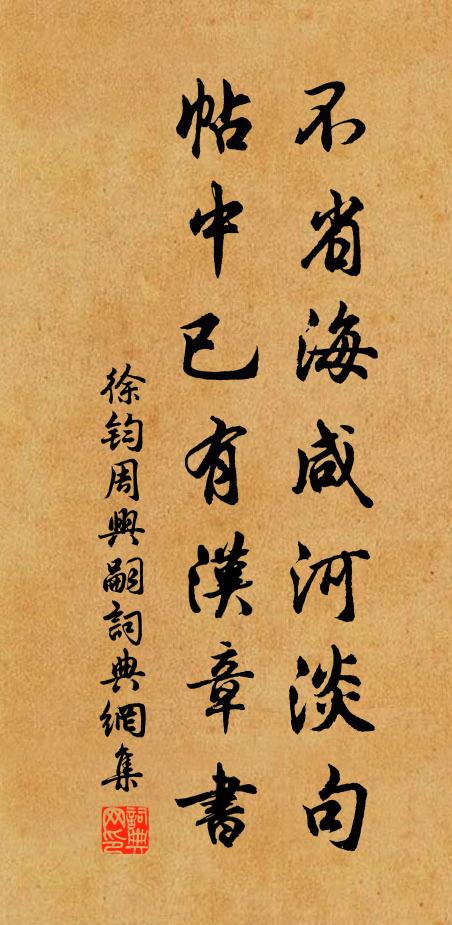 不省海咸河淡句
帖中已有漢章書
徐鈞周興嗣詞典網集
詞典网印